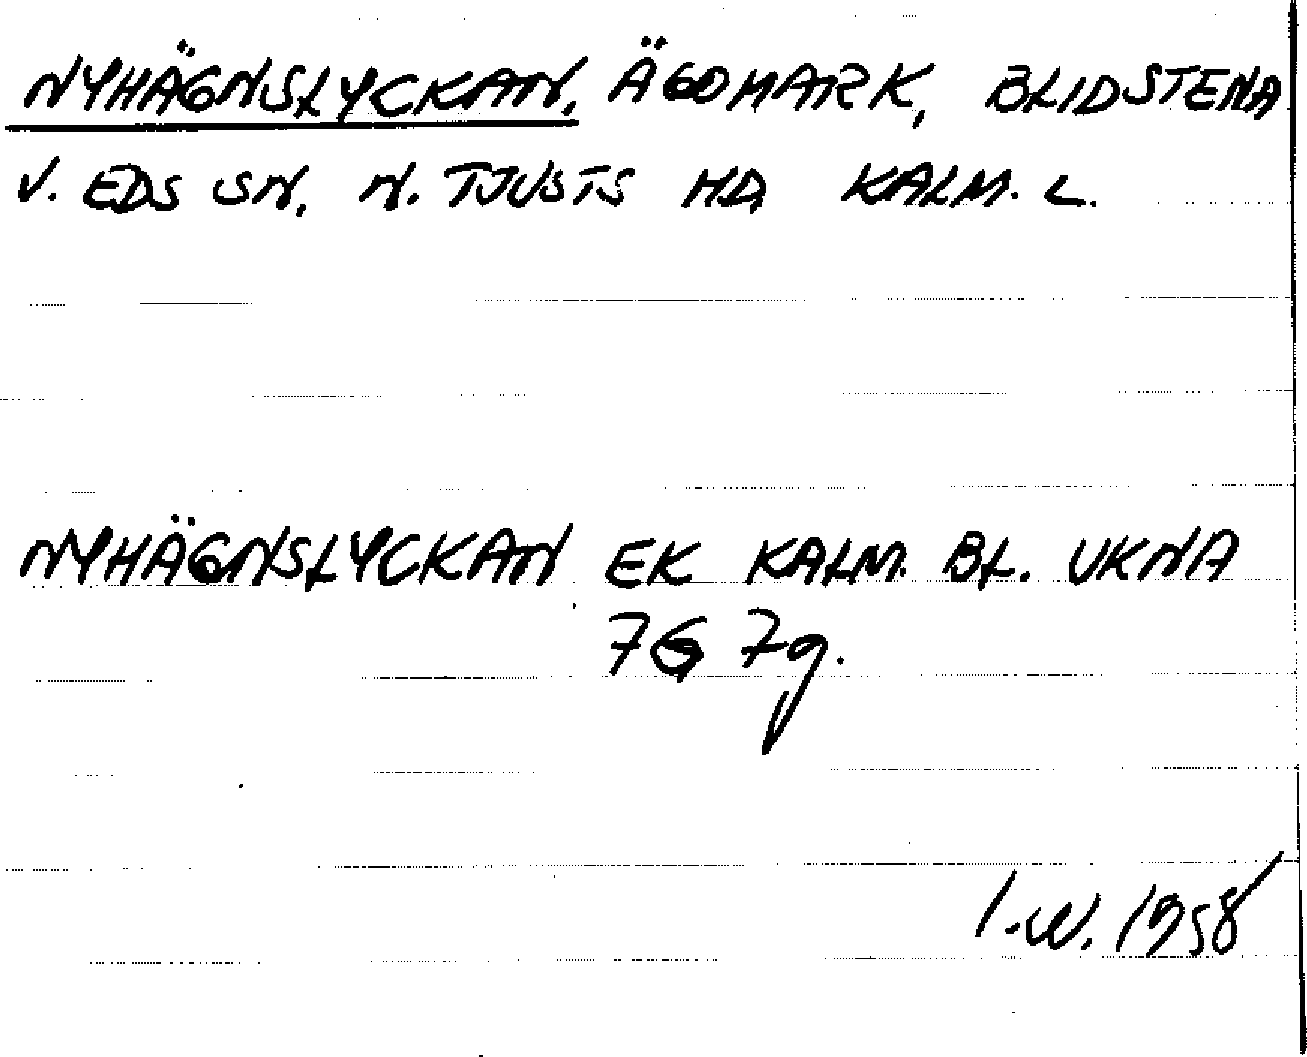 NYHÄGNSLYCKAN, ÄGOMARK, BLIDSTENA
V. EDS SN, N. TJUSTS HD, KALM. L.
NYHÄGNSLYCKAN EK KALM. BL. UKNA
7G 7g.
I.W. 1958